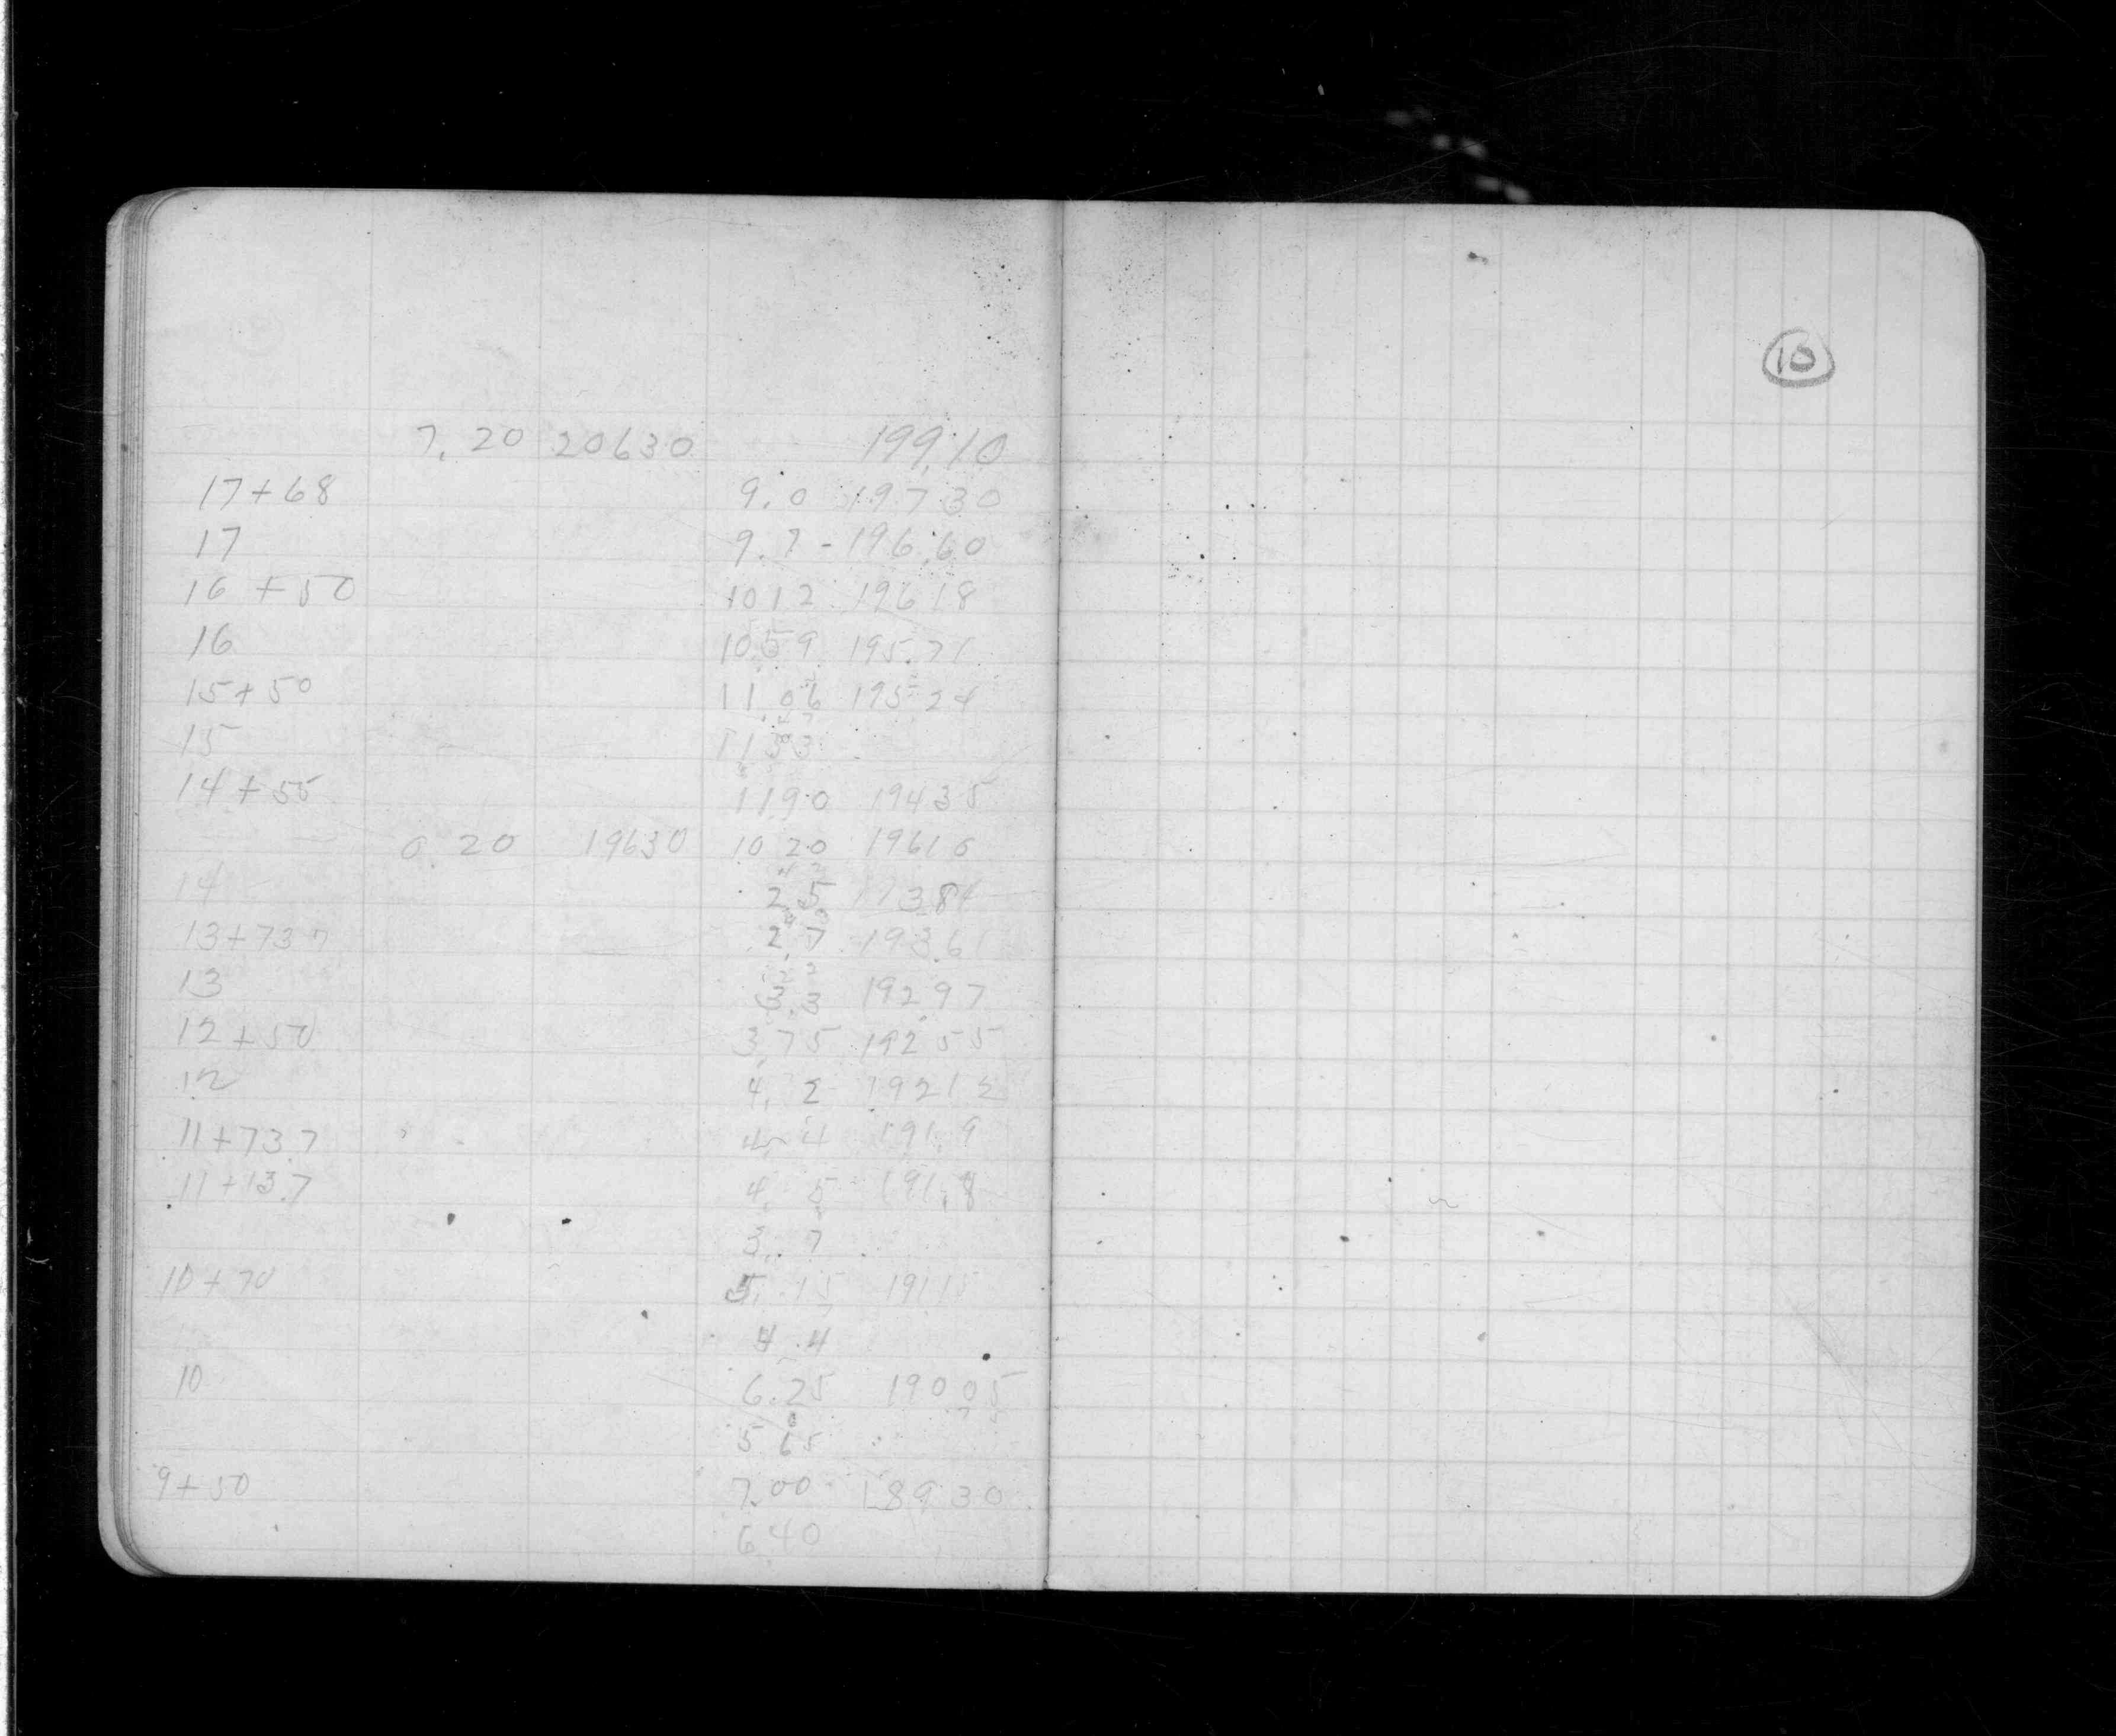 10
7.20 20630 199.10
17+68 9.0 19730
17 9.7 - 196.60
16 +50 1012 19618
16 1059 195.71
15+50 11.06 195 24
15 11 53
14+55 1190 19435
0.20 19630 10 20 19610
14 2 5 19384
13+737 2 7 19361
13 3.3 19297
12+50 3.75 192 55
12 4.2 19212
11+73.7 4.4 191.9
11+13.7 4.5 191.8
3.7
10+70 5.15 19115
4.4
10 6.25 190 05
5 65
9+50 7.00 18930
6.40